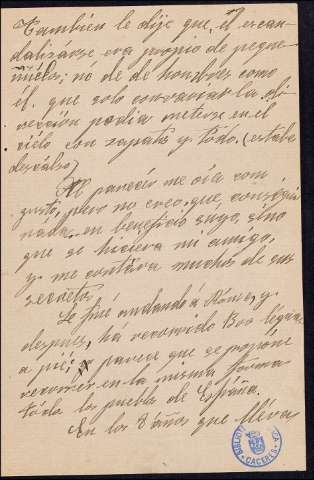 También le dije que, el escan-
dalizarse era propio de peque-
ñuelos; nó de de hombres como
él que solo con variar la di-
rección podia meterse en el
cielo con zapatos y todo. (estaba
descalso)
Al parecer me oía con
gusto, pero no creo que consegui
nada en beneficio suyo, sino
que se hiciera mi amigo,
y me contara muchos de sus
secretos.
Se fué andando á Roma, y
despues, há recorrido 800 leguas
a pié, y parece que se propone
recorrer en la misma forma
todos los pueblos de España.
En los 8 años que lleva
BIBLIOTECA
CACERES